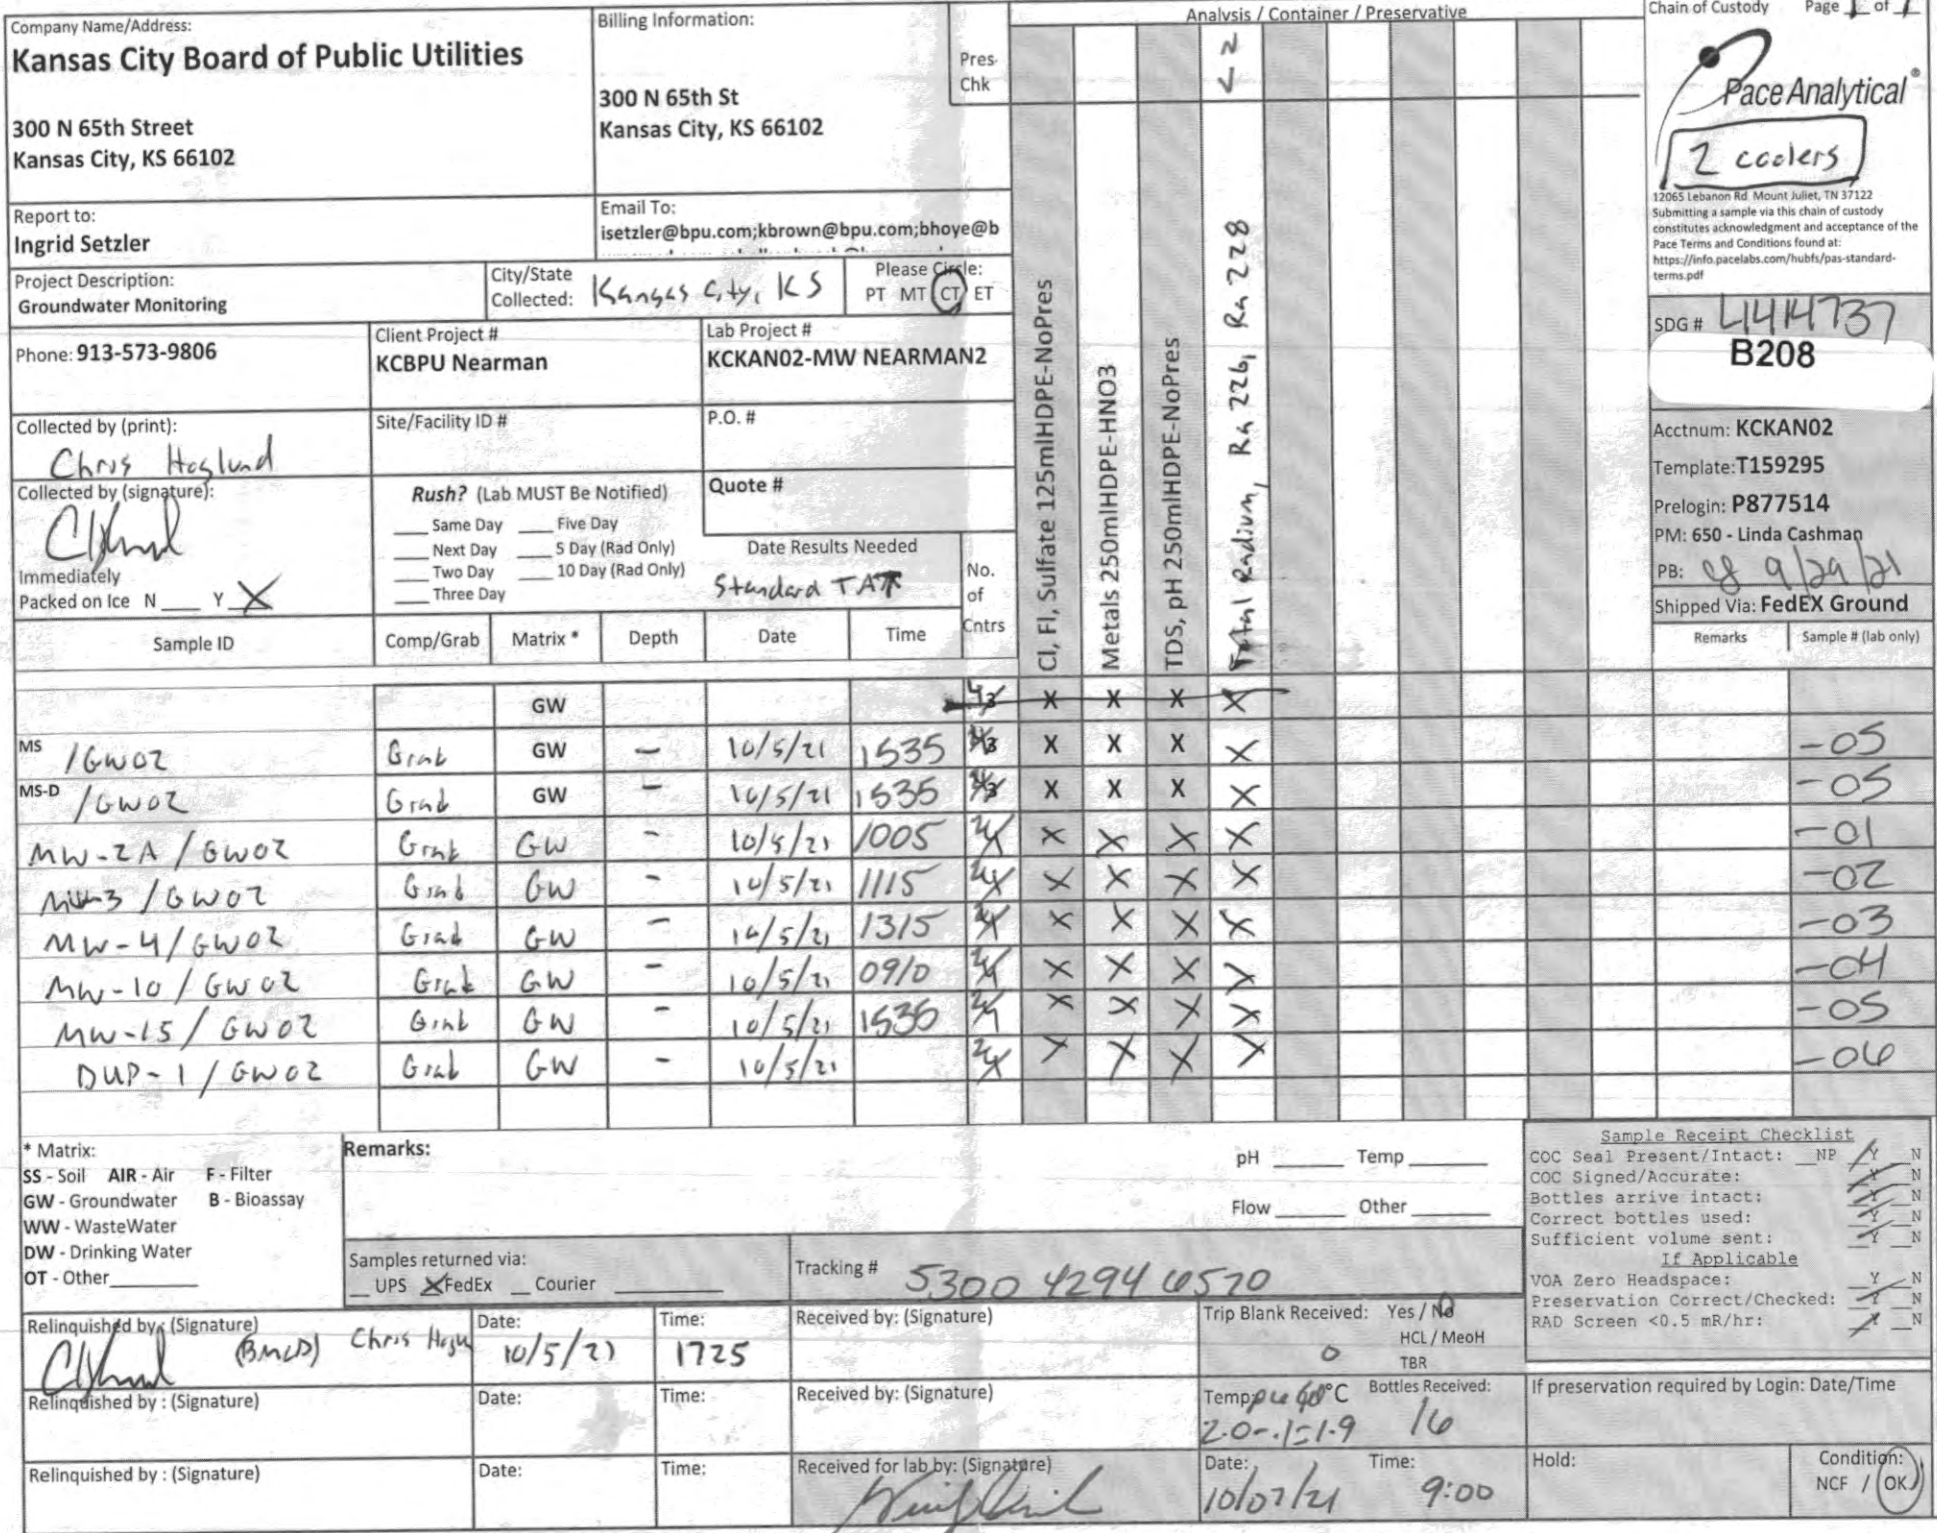 Company Name/Address:
Kansas City Board of Public Utilities
300 N 65th Street
Kansas City, KS 66102
Billing Information:
300 N 65th St
Kansas City, KS 66102
Pres
Chk
Analysis / Container / Preservative
< 2
Chain of Custody Page 1 of 1
Pace Analytical®
2 coolers
12065 Lebanon Rd Mount Juliet, TN 37122
Submitting a sample via this chain of custody
constitutes acknowledgment and acceptance of the
Pace Terms and Conditions found at:
https://info.pacelabs.com/hubfs/pas-standard-
terms.pdf
Report to:
Ingrid Setzler
Email To:
isetzler@bpu.com;kbrown@bpu.com;bhoye@b
Project Description:
Groundwater Monitoring
City/State
Collected: Kansas City, KS
Please Circle:
PT MT CT ET
SDG # L1414737
B208
Phone: 913-573-9806
Client Project #
KCBPU Nearman
Lab Project #
KCKAN02-MW NEARMAN2
Collected by (print):
Chris Hoglund
Site/Facility ID #
P.O. #
Collected by (signature):
Immediately
Packed on Ice N ___ Y X
Rush? (Lab MUST Be Notified)
___ Same Day ___ Five Day
___ Next Day ___ 5 Day (Rad Only)
___ Two Day ___ 10 Day (Rad Only)
___ Three Day
Quote #
Date Results Needed
Standard TAT
No.
of
Cntrs
Cl, Fl, Sulfate 125mlHDPE-NoPres
Metals 250mlHDPE-HNO3
TDS, pH 250mlHDPE-NoPres
Total Radium, Ra 226, Ra 228
Acctnum: KCKAN02
Template: T159295
Prelogin: P877514
PM: 650 - Linda Cashman
PB: 9/29/21
Shipped Via: FedEX Ground
Remarks Sample # (lab only)
Sample ID Comp/Grab Matrix * Depth Date Time
GW X X X X
MS /GW02 Grab GW - 10/5/21 1535 X X X X -05
MS-D /GW02 Grab GW - 10/5/21 1535 X X X X -05
MW-2A / GW02 Grab GW - 10/5/21 1005 X X X X -01
MW-3 / GW02 Grab GW - 10/5/21 1115 X X X X -02
MW-4 / GW02 Grab GW - 10/5/21 1315 X X X X -03
MW-10 / GW02 Grab GW - 10/5/21 0910 X X X X -04
MW-15 / GW02 Grab GW - 10/5/21 1535 X X X X -05
DUP-1 / GW02 Grab GW - 10/5/21 X X X X -06
* Matrix:
SS - Soil AIR - Air F - Filter
GW - Groundwater B - Bioassay
WW - WasteWater
DW - Drinking Water
OT - Other
Remarks:
pH ___ Temp ___
Flow ___ Other ___
Sample Receipt Checklist
COC Seal Present/Intact: __NP Y N
COC Signed/Accurate: Y N
Bottles arrive intact: Y N
Correct bottles used: Y N
Sufficient volume sent: Y N
If Applicable
VOA Zero Headspace: Y N
Preservation Correct/Checked: Y N
RAD Screen <0.5 mR/hr: Y N
Samples returned via:
__ UPS X FedEx __ Courier
Tracking # 5300 4294 6520
Relinquished by : (Signature)
(BMCD) Chris Hoglu
Date:
10/5/21
Time:
1725
Received by: (Signature)
Trip Blank Received: Yes / No
HCL / MeoH
TBR
0
Relinquished by : (Signature)
Date:
Time:
Received by: (Signature)
Temp °C
2.0-.1=1.9
Bottles Received:
16
If preservation required by Login: Date/Time
Relinquished by : (Signature)
Date:
Time:
Received for lab by: (Signature)
Date:
10/07/21
Time:
9:00
Hold:
Condition:
NCF / OK